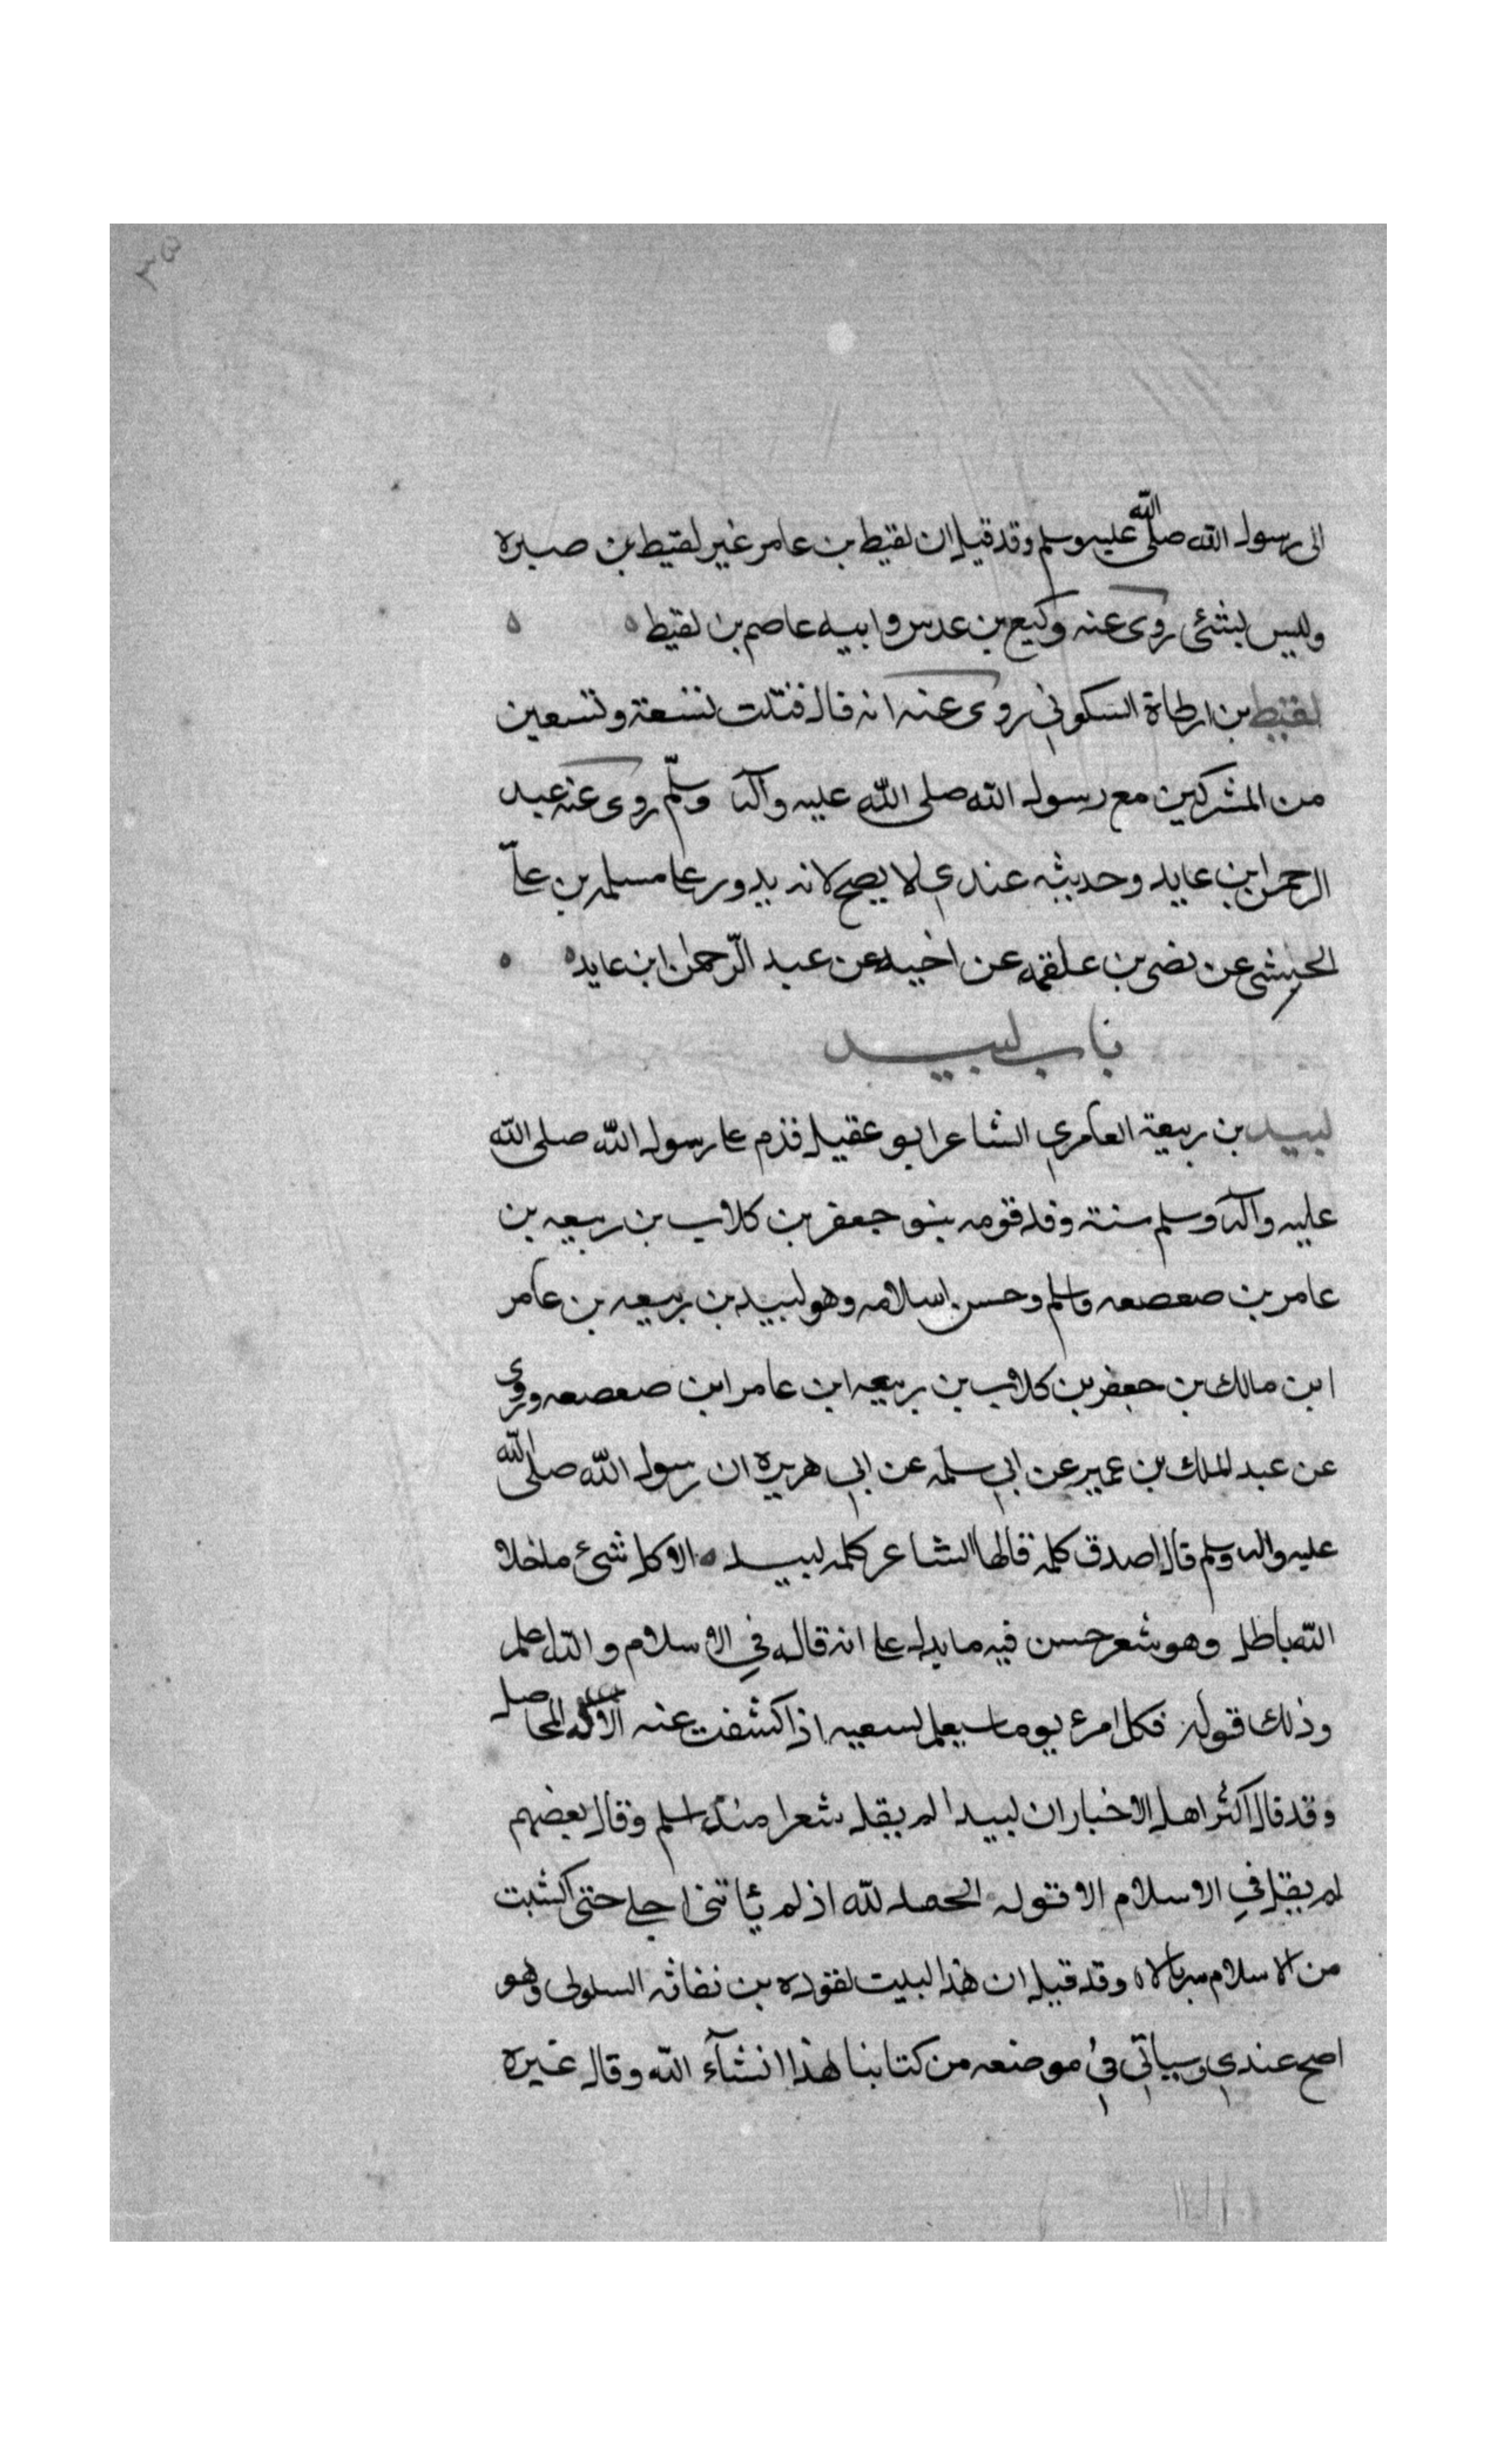 ٣٥
الى رسول الله صلى الله عليه وسلم وقد قيل ان لقيط بن عامر غير لقيط بن صبره
وليس بشئ روى عنه وكيع بن عدس وابيه عاصم بن لقيط
لقيط بن ارطاة السكوني روى عنه انه قال قتلت تسعة وتسعين
من المشركين مع رسول الله صلى الله عليه وآله وسلّم روى عنه عبد
الرحمن ابن عايد وحديثه عندي لا يصح لانه يدور على مسلمه بن على
الخشنى عن نصر بن علقمه عن اخيه عن عبد الرّحمن ابن عايد
باب لبيد
لبيد بن ربيعة العامري الشاعر ابو عقيل قدم على رسول الله صلى الله
عليه وآله وسلم سنة وفد قومه بنو جعفر بن كلاب بن ربيعه بن
عامر بن صعصعه واسلم وحسن اسلامه وهو لبيد بن ربيعه بن عامر
ابن مالك بن جعفر بن كلاب بن ربيعه ابن عامر ابن صعصعه وروى
عن عبد الملك بن عمير عن ابي سلمه عن ابي هريره ان رسول الله صلى الله
عليه واله وسلم قال اصدق كلمة قالها الشاعر كلمه لبيد الا كل شئ ما خلا
الله باطل وهو شعر حسن فيه ما يدل على انه قاله في الاسلام والله اعلم
وذلك قوله فكل امرء يوما سيعلم سعيه اذا كشفت عنه الاله المحاصل
وقد قال اكثر اهل الاخبار ان لبيدا لم يقل شعرا منذ اسلم وقال بعضهم
لم يقل في الاسلام الا قوله الحمد لله اذ لم يأتني اجلي حتى اكتسبت
من الاسلام سربالا وقد قيل ان هذا البيت لقوده بن نفاثه السلولى وهو
اصح عندي وسياتي في موضعه من كتابنا هذا انشآء الله وقال غيره